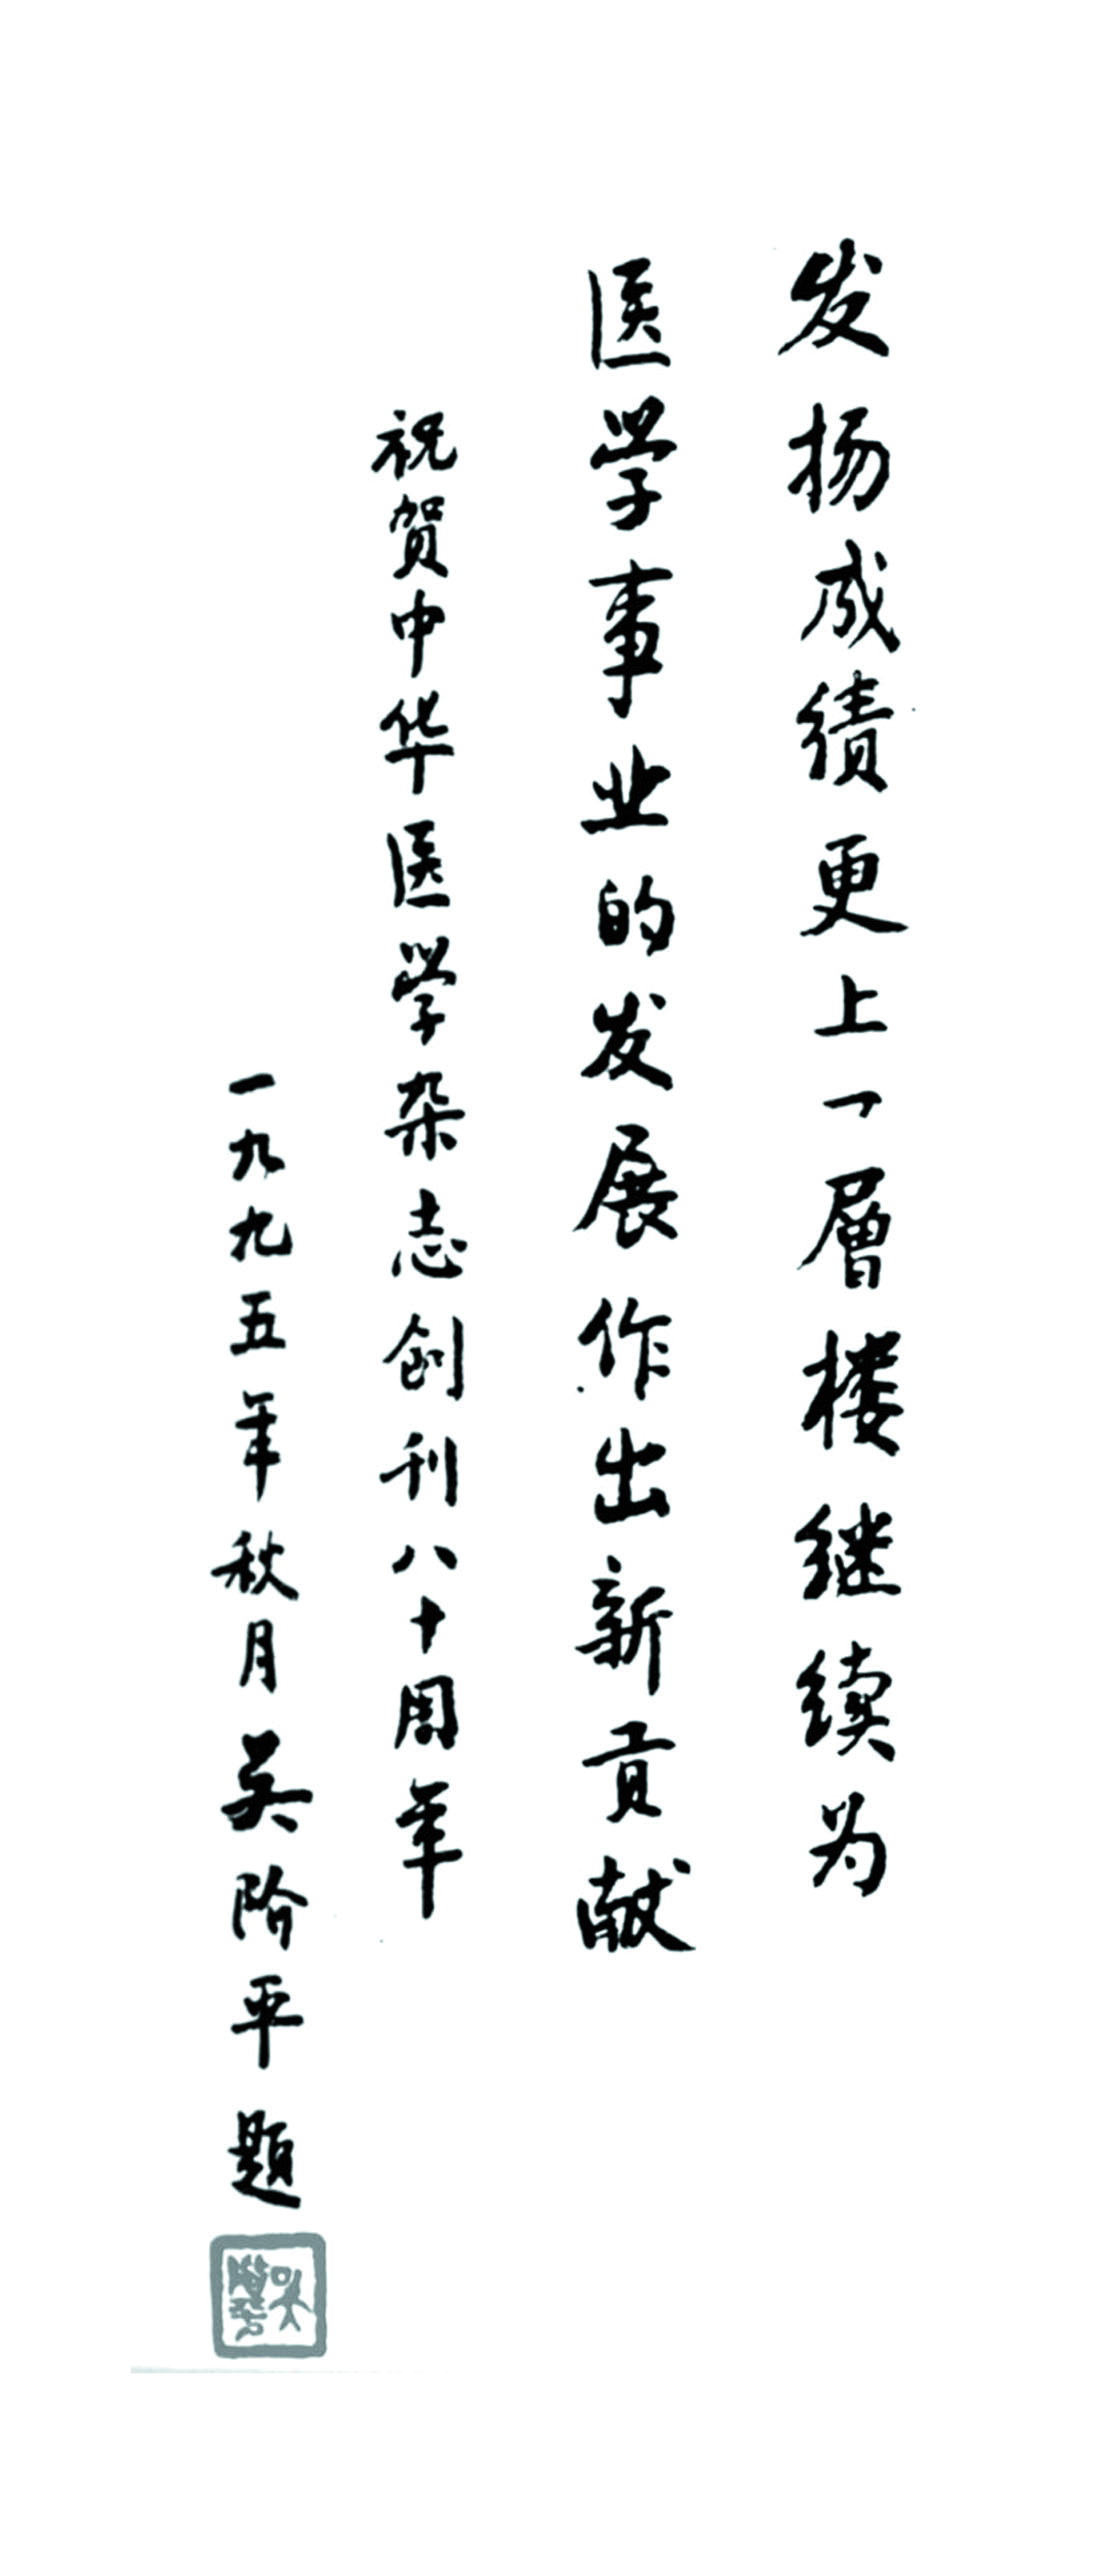 发扬成绩更上一層楼继续为
医学事业的发展作出新贡献
祝贺中华医学杂志创刊八十周年
一九九五年秋月吴阶平题